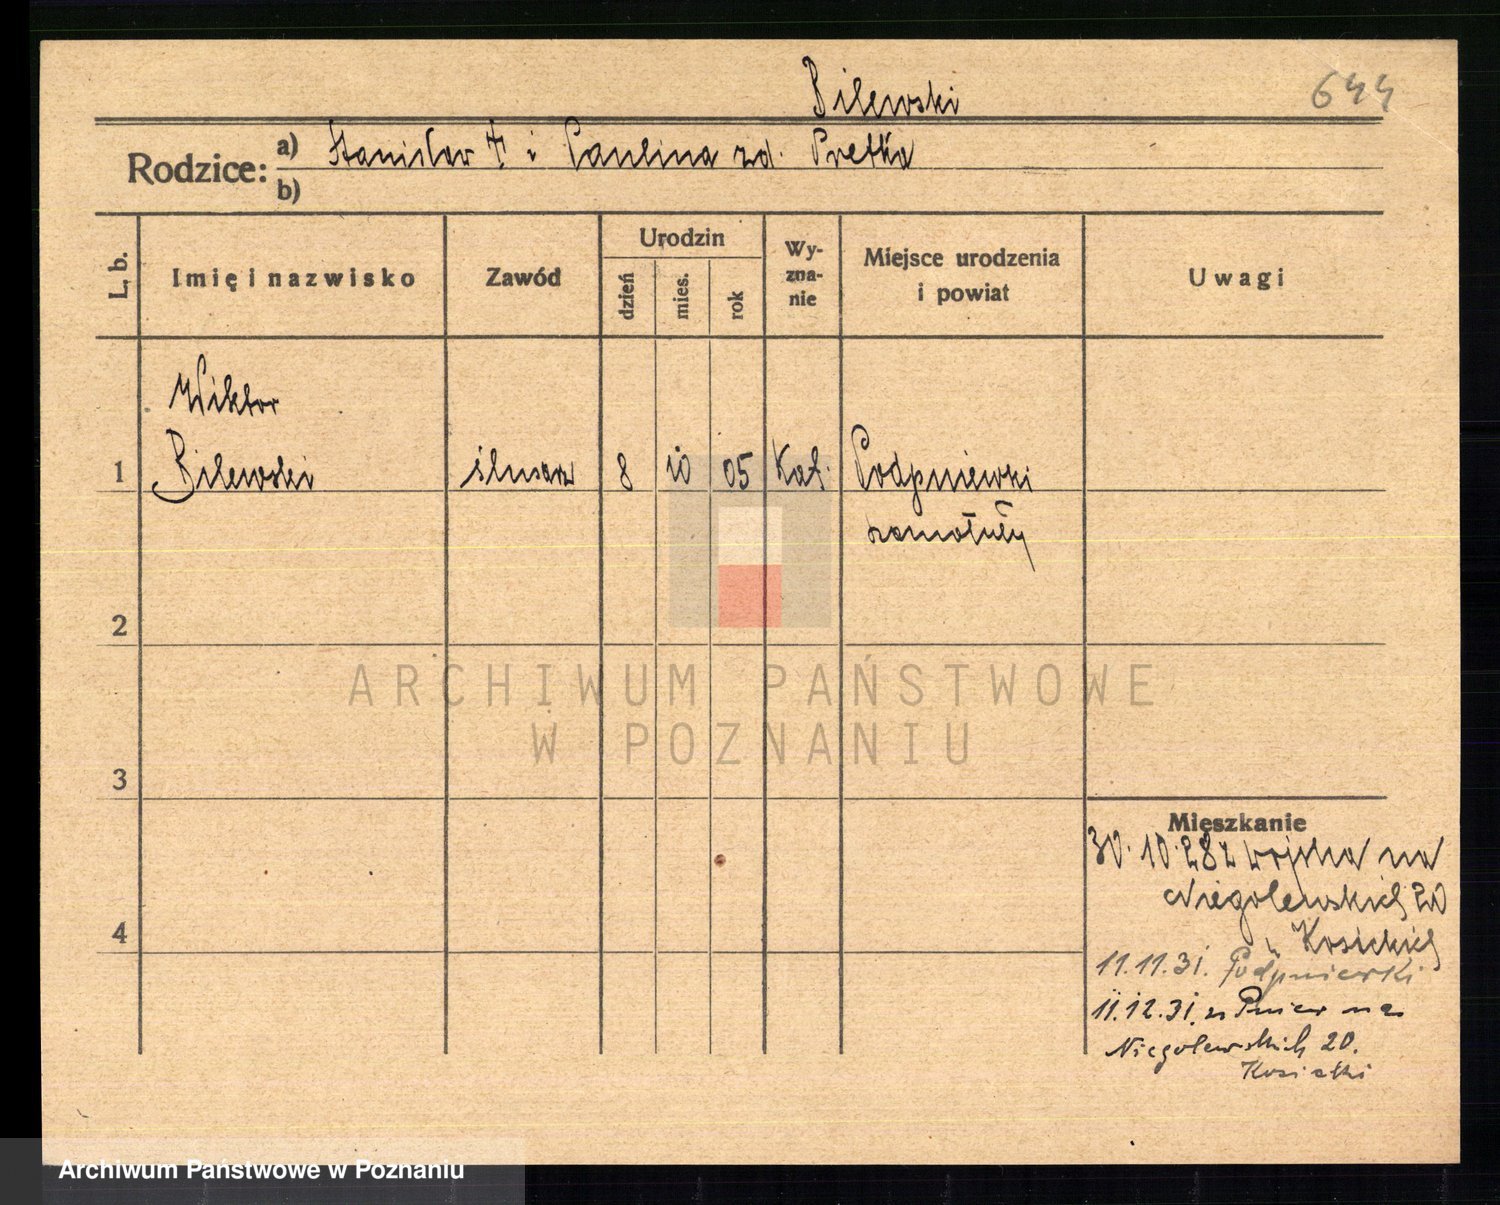 Bilewski
644
Rodzice: a) Stanisław † i Paulina zd. Pretka
b)
L. b.
Imię i nazwisko
Zawód
Urodzin
dzień
mies.
rok
Wy-
zna-
nie
Miejsce urodzenia
i powiat
Uwagi
Wiktor
1 Bilewski ślusarz 8 10 05 Kat. Podpniewki
szamotuły
2
ARCHIWUM PAŃSTWOWE
W POZNANIU
3
Mieszkanie
30.10.28 z wojska na
Niegolewskich 20
4
u Kosickich
11.11.31. Podpniewki
11.12.31. z Pniew na
Niegolewskich 20.
Kosicki
Archiwum Państwowe w Poznaniu